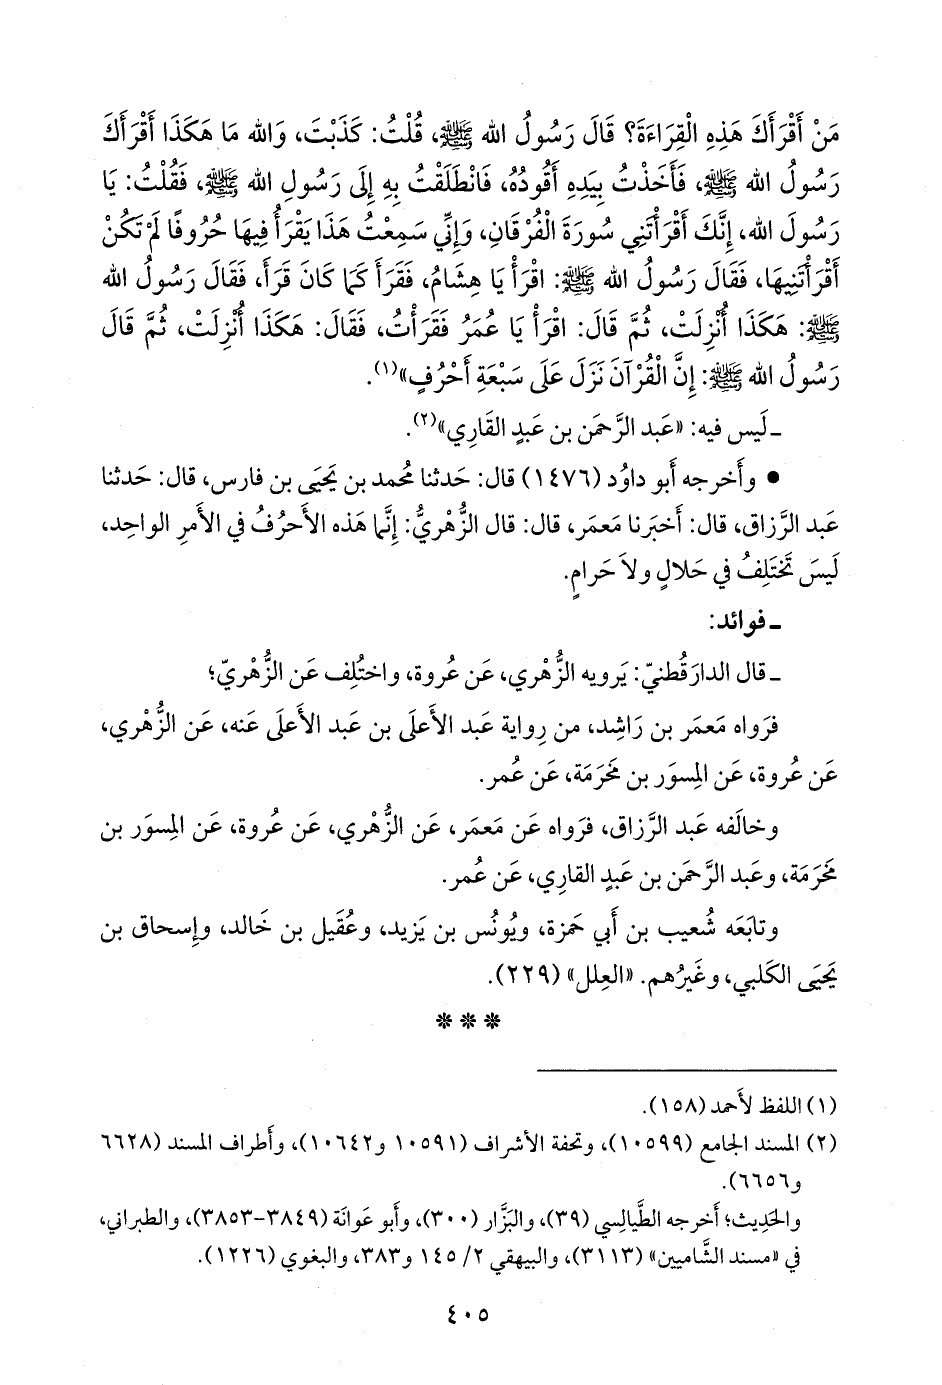 مَنْ أَقْرَأَكَ هَذِهِ الْقِرَاءَةَ؟ قَالَ رَسُولُ الله ﷺ، قُلْتُ: كَذَبْتَ، وَالله مَا هَكَذَا أَقْرَأَكَ
رَسُولُ الله ﷺ، فَأَخَذْتُ بِيَدِهِ أَقُودُهُ، فَانْطَلَقْتُ بِهِ إِلَى رَسُولِ الله ﷺ، فَقُلْتُ: يَا
رَسُولَ الله، إِنَّكَ أَقْرَأْتَنِي سُورَةَ الْفُرْقَانِ، وَإِنِّي سَمِعْتُ هَذَا يَقْرَأُ فِيهَا حُرُوفًا لَمْ تَكُنْ
أَقْرَأْتَنِيهَا، فَقَالَ رَسُولُ الله ﷺ: اقْرَأْ يَا هِشَامُ، فَقَرَأَ كَمَا كَانَ قَرَأَ، فَقَالَ رَسُولُ الله
ﷺ: هَكَذَا أُنْزِلَتْ، ثُمَّ قَالَ: اقْرَأْ يَا عُمَرُ فَقَرَأْتُ، فَقَالَ: هَكَذَا أُنْزِلَتْ، ثُمَّ قَالَ
رَسُولُ الله ﷺ: إِنَّ الْقُرْآنَ نَزَلَ عَلَى سَبْعَةِ أَحْرُفٍ»(١).
ـ لَيس فيه: «عَبد الرَّحمَن بن عَبدٍ القَارِي»(٢).
• وأَخرجه أَبو داوُد (١٤٧٦) قال: حَدثنا مُحمد بن يَحيَى بن فارس، قال: حَدثنا
عَبد الرَّزاق، قال: أَخبَرنا مَعمَر، قال: قال الزُّهْرِيُّ: إِنَّما هَذه الأَحرُفُ في الأَمرِ الواحِد،
لَيسَ تَختَلِفُ في حَلالٍ ولاَ حَرامٍ.
ـ فوائد:
ـ قال الدارَقُطنيّ: يَرويه الزُّهْري، عَن عُروة، واختُلِف عَن الزُّهْريّ؛
فرَواه مَعمَر بن رَاشِد، من رِواية عَبد الأَعلَى بن عَبد الأَعلَى عَنه، عَن الزُّهْري،
عَن عُروة، عَن المِسوَر بن مَخرَمَة، عَن عُمر.
وخالَفه عَبد الرَّزاق، فرَواه عَن مَعمَر، عَن الزُّهْري، عَن عُروة، عَن المِسوَر بن
مَخرَمَة، وعَبد الرَّحمَن بن عَبدٍ القارِي، عَن عُمر.
وتابَعَه شُعيب بن أَبي حَمزة، ويُونُس بن يَزيد، وعُقَيل بن خَالد، وإِسحاق بن
يَحيَى الكَلبي، وغَيرُهم. «العِلل» (٢٢٩).
* * *
(١) اللفظ لأَحمد (١٥٨).
(٢) المسند الجامع (١٠٥٩٩)، وتحفة الأشراف (١٠٥٩١ و١٠٦٤٢)، وأَطراف المسند (٦٦٢٨
و٦٦٥٦).
والحَدِيث؛ أَخرجه الطَّيالِسي (٣٩)، والبَزَّار (٣٠٠)، وأَبو عَوانَة (٣٨٤٩-٣٨٥٣)، والطبراني،
في «مسند الشَّاميين» (٣١١٣)، والبيهقي ٢/ ١٤٥ و٣٨٣، والبغوي (١٢٢٦).
٤٠٥